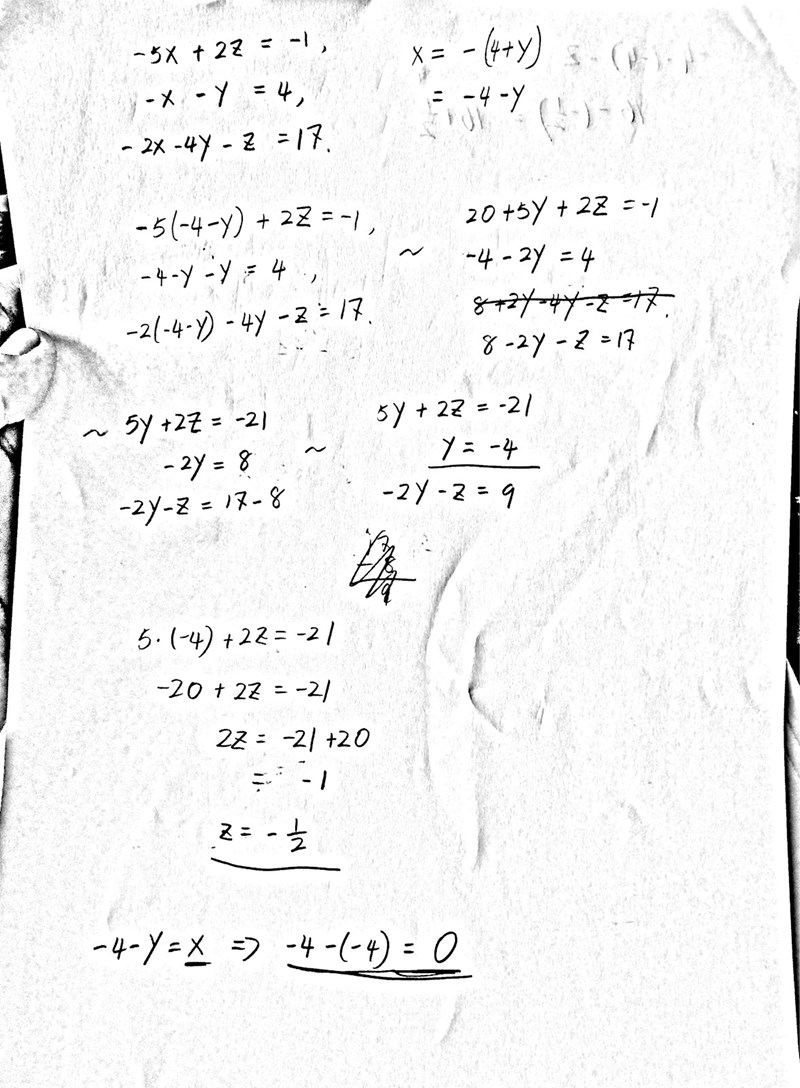 -5x + 2z = -1,
-x - y = 4,
-2x -4y - z = 17.
x = - (4+y)
= -4 - y
-5(-4-y) + 2z = -1,
-4-y -y = 4 ,
-2(-4-y) - 4y - z = 17.
~ 20 + 5y + 2z = -1
-4 - 2y = 4
8 + 2y - 4y - z = 17.
8 - 2y - z = 17
~ 5y + 2z = -21
-2y = 8
-2y - z = 17 - 8
~ 5y + 2z = -21
y = -4
-2y - z = 9
5·(-4) + 2z = -21
-20 + 2z = -21
2z = -21 + 20
= -1
z = - 1/2
-4 - y = x => -4 -(-4) = 0